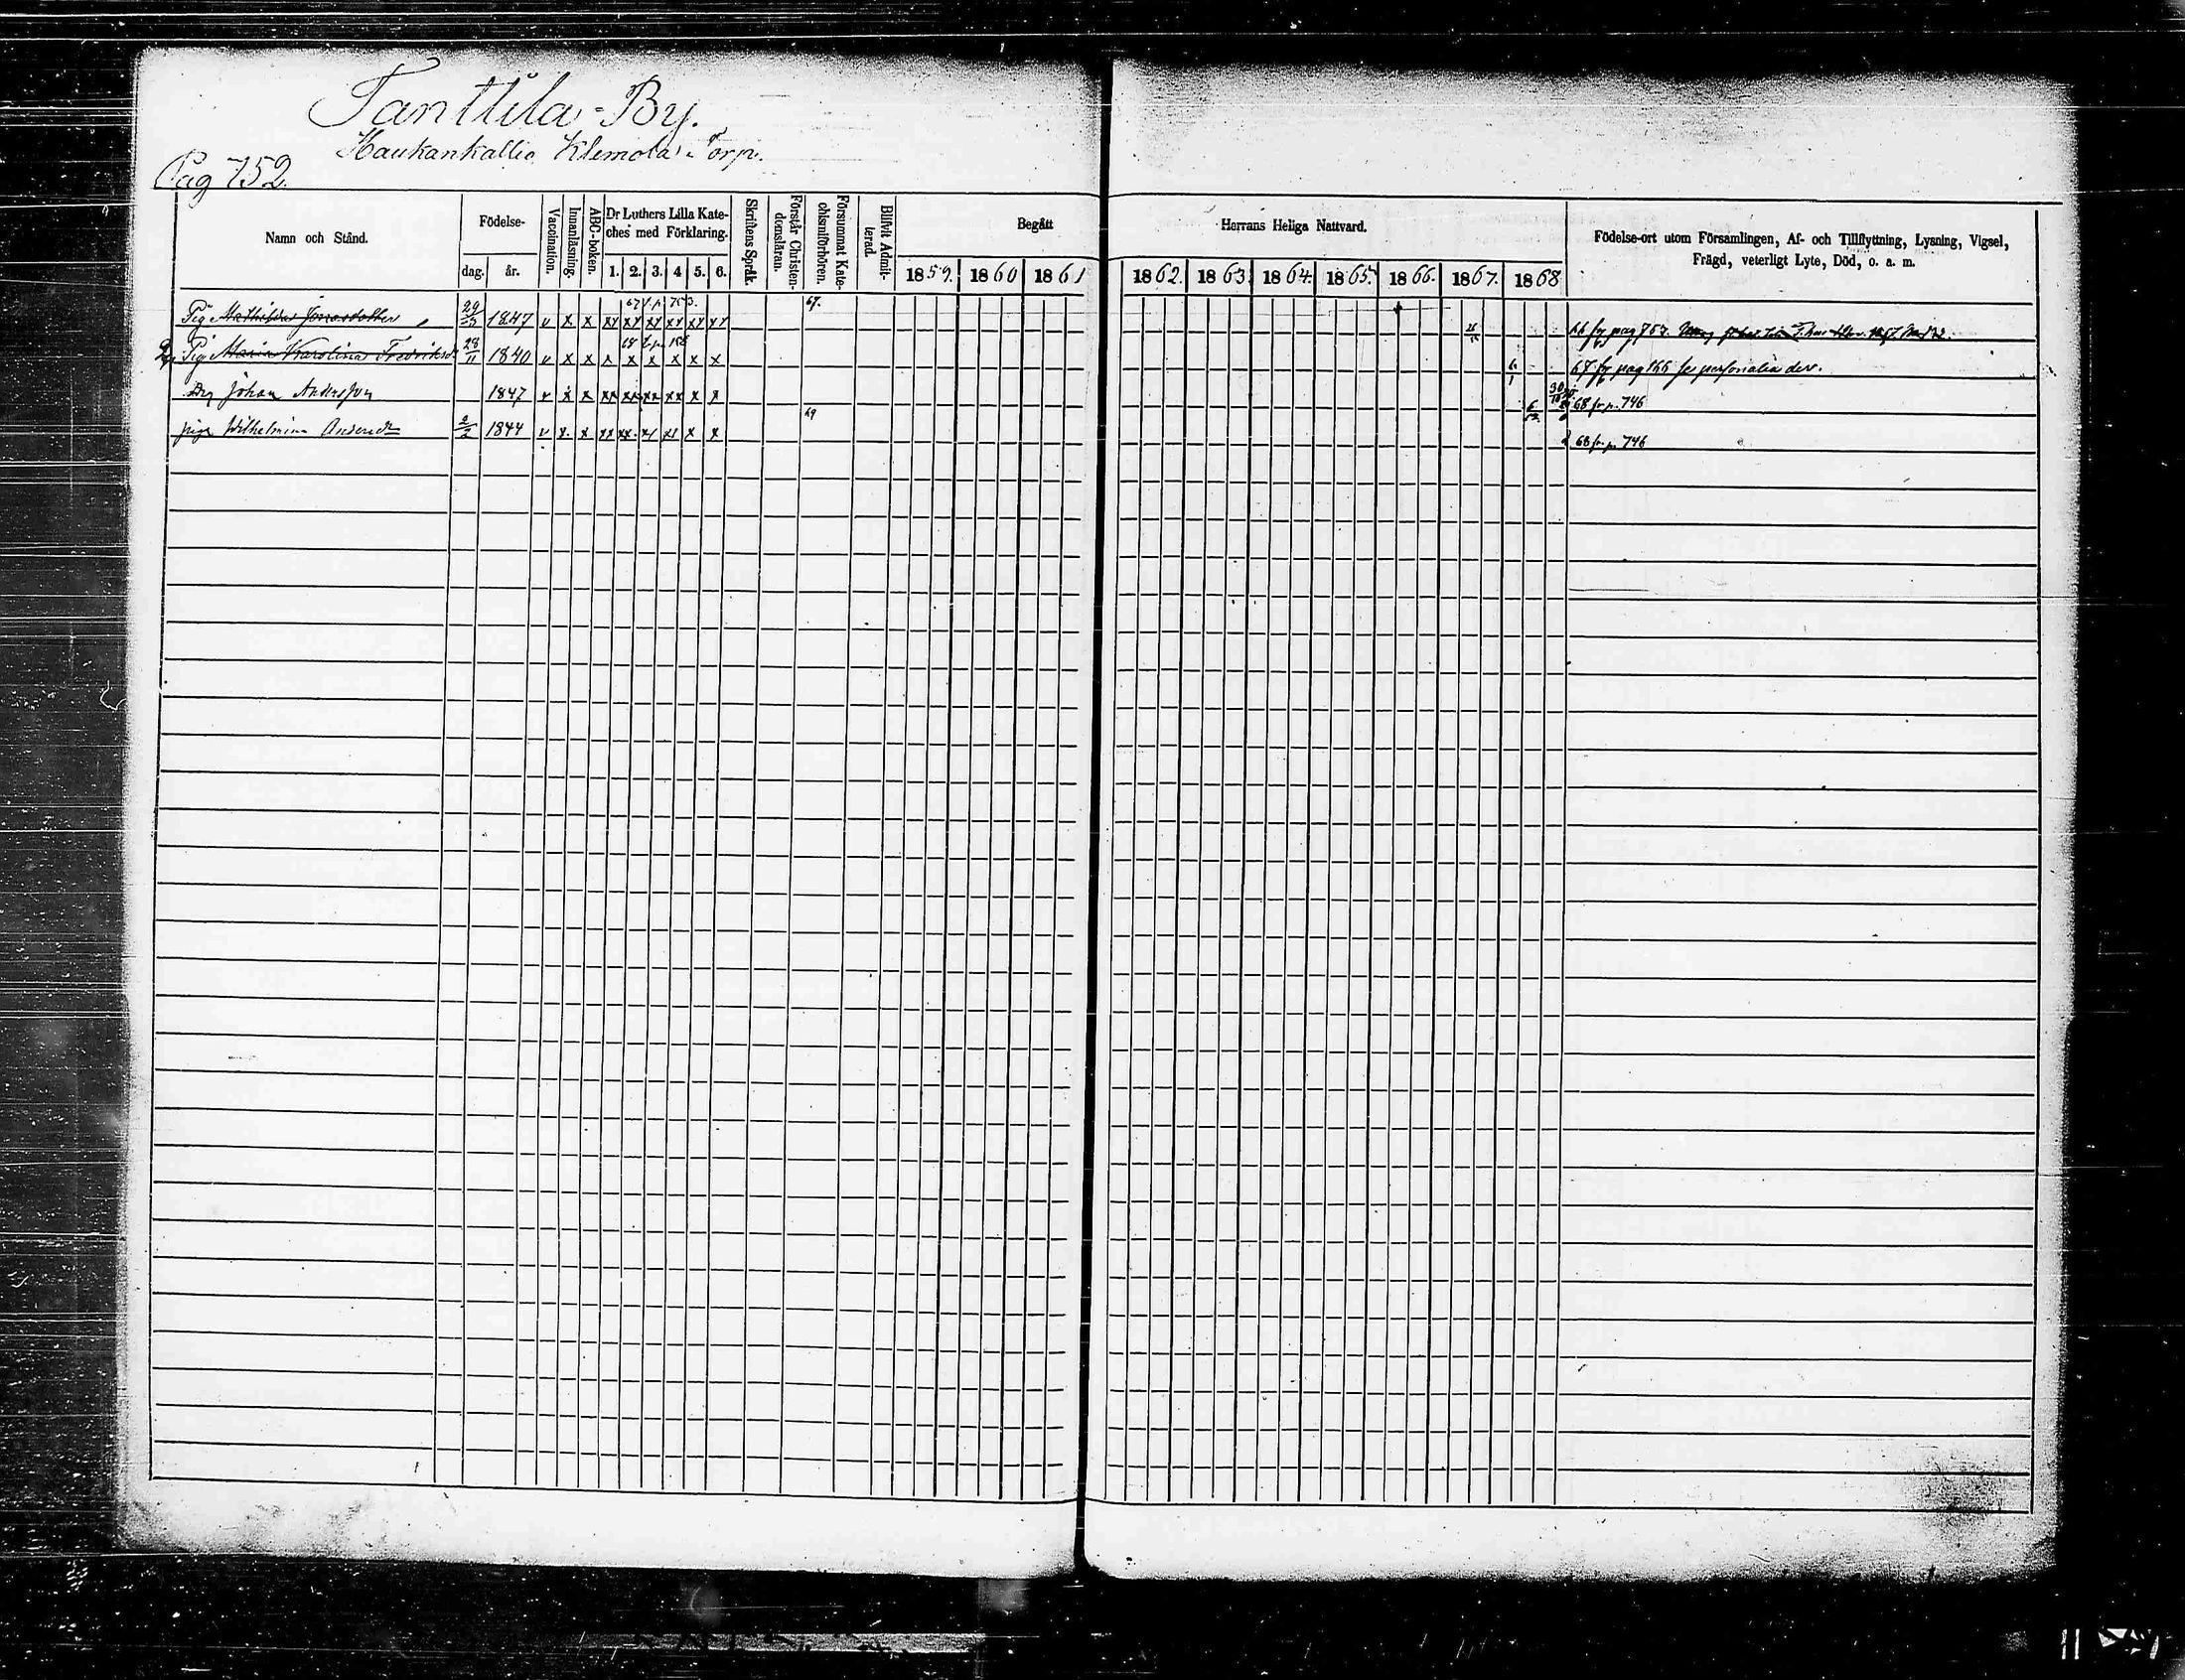 Tanttila By.
Haukankallio Klemola Torp.
Pag 752.
Namn och Stånd.
Födelse-
dag. år.
Vaccination.
Innanläsning.
ABC-boken.
Dr Luthers Lilla Kate-
ches med Förklaring.
1. 2. 3. 4 5. 6.
Skriftens Språk.
Förstår Christen-
domsläran.
Försummat Kate-
chismiförhören.
Blifvit Admit-
terad.
Begått
1859. 1860 1861
Herrans Heliga Nattvard.
1862. 1863. 1864. 1865. 1866. 1867. 1868
Födelse-ort utom Församlingen, Af- och Tillflyttning, Lysning, Vigsel,
Frägd, veterligt Lyte, Död, o. a. m.
67.
Pig Mathilda Jonasdotter 29/3 1847 v x x xy xy xy xy xy xy
fr pag 757.
Pig Maria Karolina Fredriksdr 28/11 1840 v x x x x x x x x 6/1 67 fr pag 166 se personalia der.
Drg Johan Andersson 1847 v x x xx xx xx xx x x 68 fr p. 746
69
piga Wilhelmina Andersdr 1844 v x x x x 68 fr. p. 746